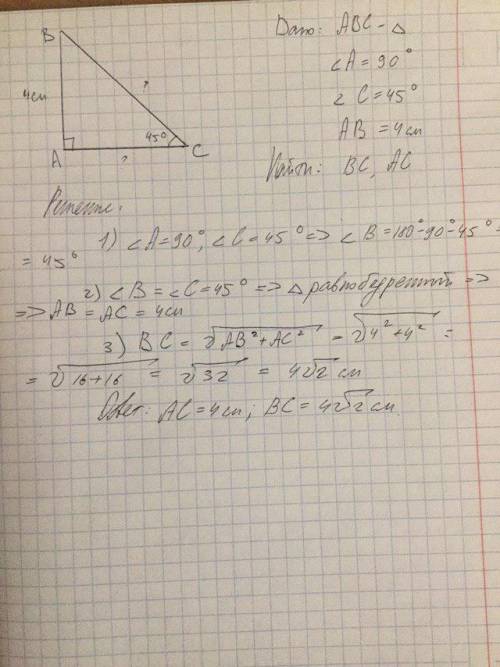 Дано: ABC - △
B
∠A = 90°
?
4см
∠C = 45°
45°
AB = 4см
A
C
?
Найти: BC, AC
Решение.
1) ∠A = 90°, ∠C = 45° => ∠B = 180° - 90° - 45° =
= 45°
2) ∠B = ∠C = 45° => △ равнобедренный =>
=> AB = AC = 4см
3) BC = √AB² + AC² = √4² + 4² =
= √16 + 16 = √32 = 4√2 см
Ответ: AC = 4см; BC = 4√2 см.